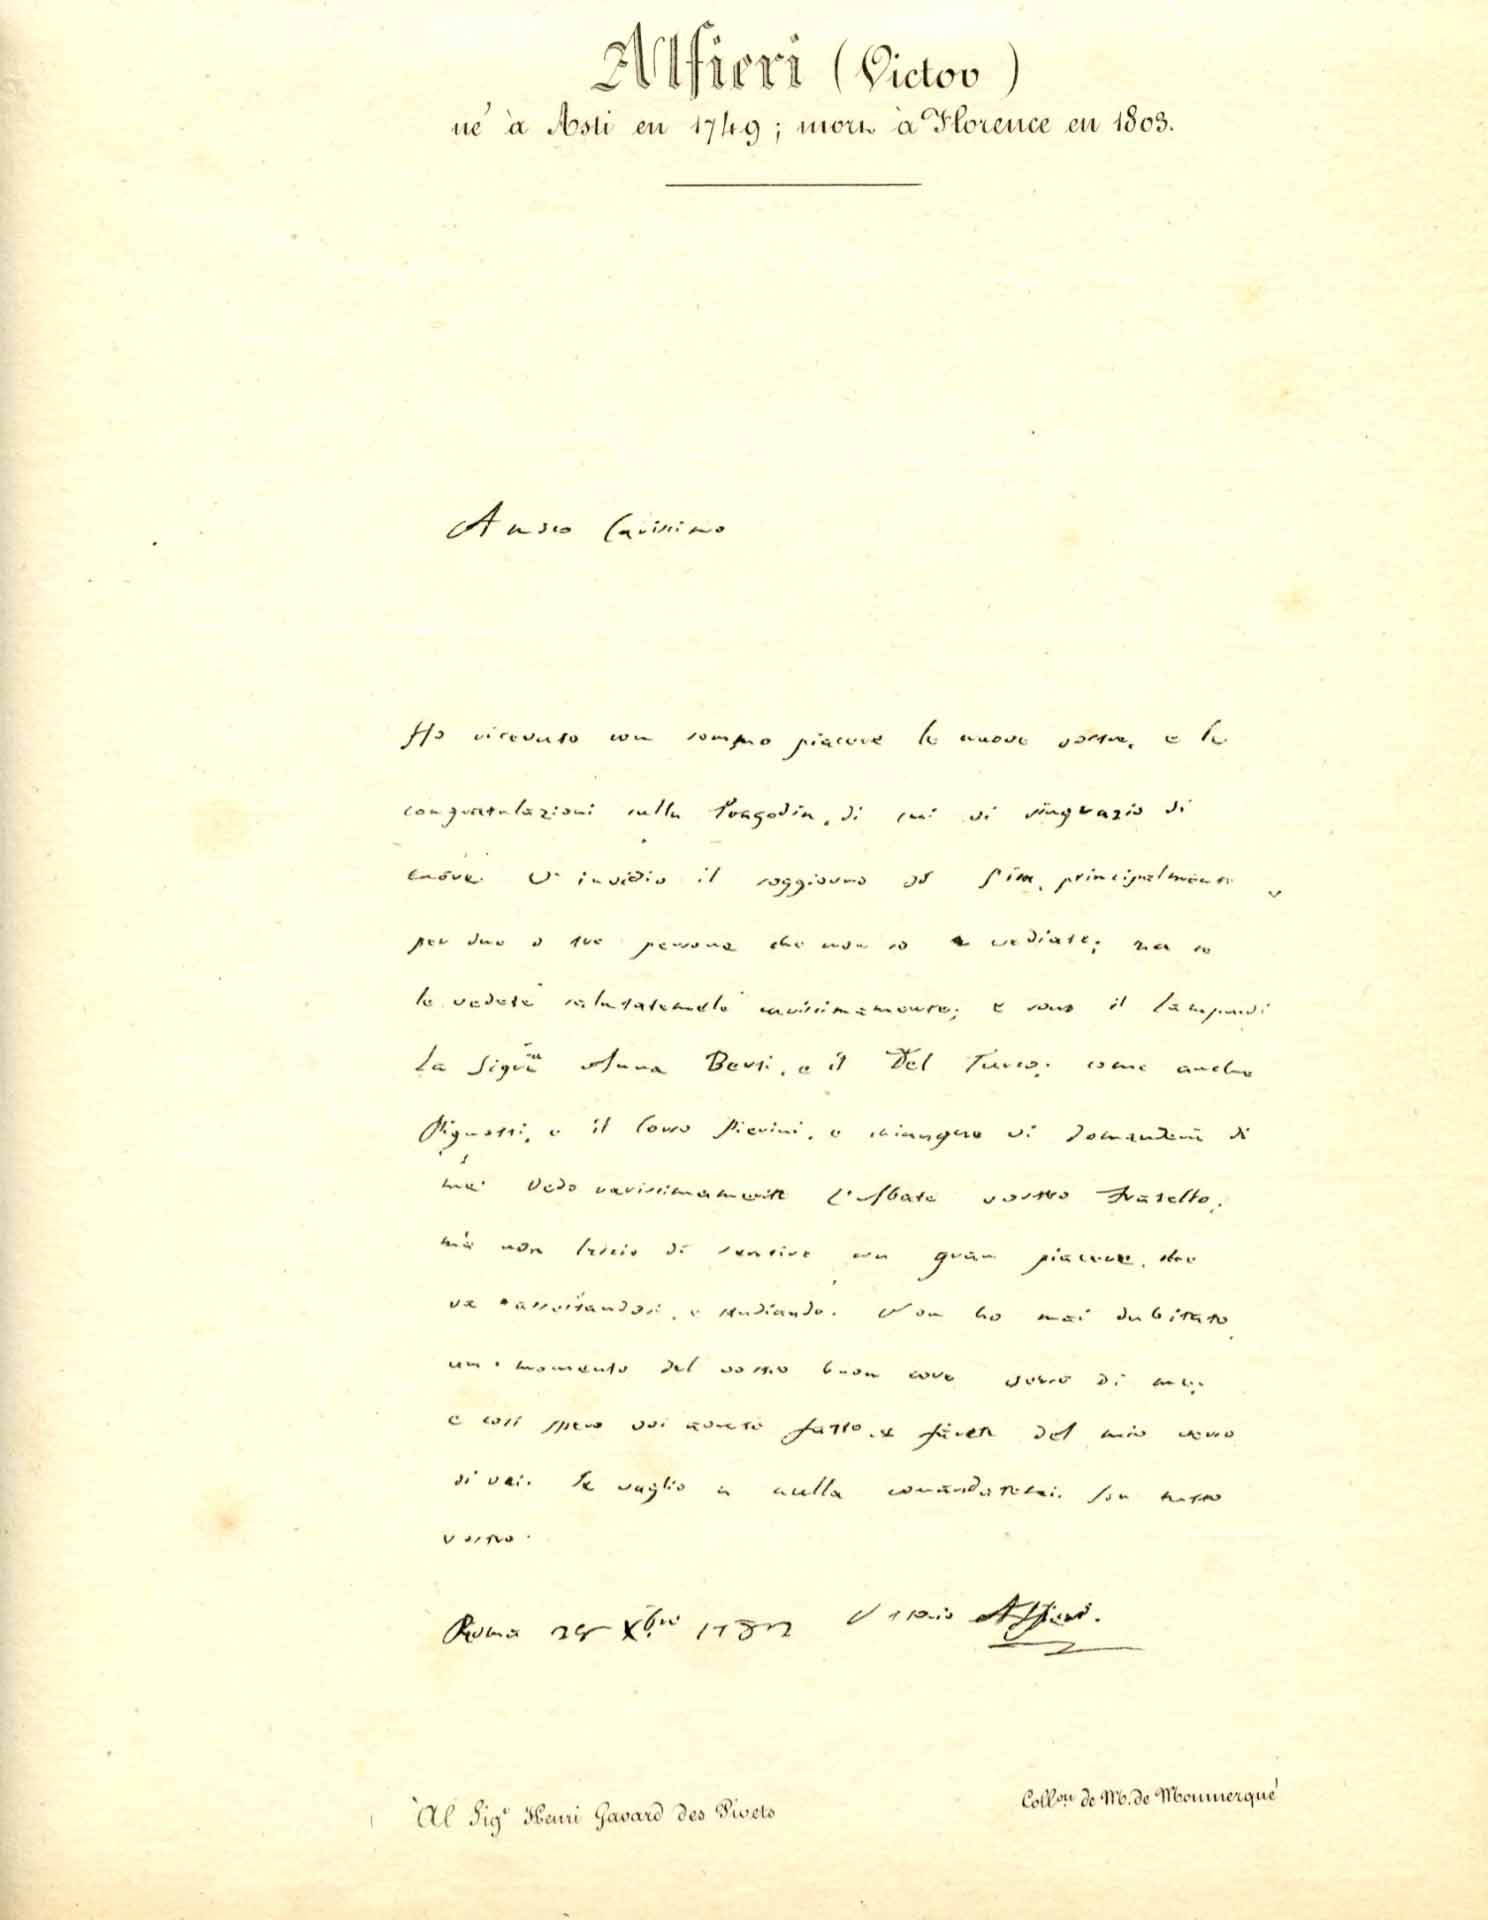 Alfieri (Victor)
né à Asti en 1749; mort à Florence en 1803.
Amico Carissimo
Ho ricevuto con sommo piacere le nuove vostre, e le
congratulazioni sulla Tragedia, di cui vi ringrazio di
cuore. V'invidio il soggiorno di Pisa, principalmente
per due o tre persone che non so se vediate; ma se
le vedete salutatemele carissimamente; e sono il Lampredi
la Sigra Anna Berti, e il Del Turco; come anche
Pignotti, e il Corso Pierini, e chiunque vi domanderà di
me. Vedo rarissimamente l'Abate vostro Fratello;
ma non lascio di sentire con gran piacere, che
va assestandosi, e studiando. Non ho mai dubitato
un momento del vostro buon core verso di me;
e così spero voi avrete fatto, e farete del mio verso
di voi. Se vaglio a nulla comandatemi. Son tutto
vostro.
Roma Xbre 1782 Vittorio Alfieri.
Al Sigr Henri Gavard des Pivets
Collon de M. de Monmerqué